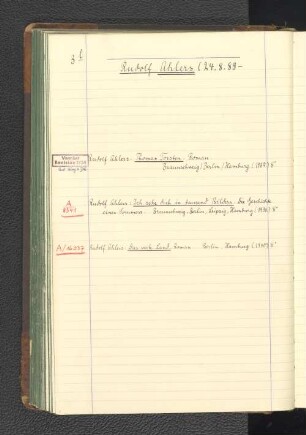 3 l
Rudolf Ahlers (24. 8. 89 –
Rudolf Ahlers: Thomas Torsten. Roman
Braunschweig/Berlin/Hamburg (1935) 8°
A
Rudolf Ahlers: Ich sehe dich in tausend Bildern. Die Geschichte
eines Romans. Braunschweig, Berlin, Leipzig, Hamburg (1936) 8°
Rudolf Ahlers: Das weite Land. Roman. Berlin, Hamburg